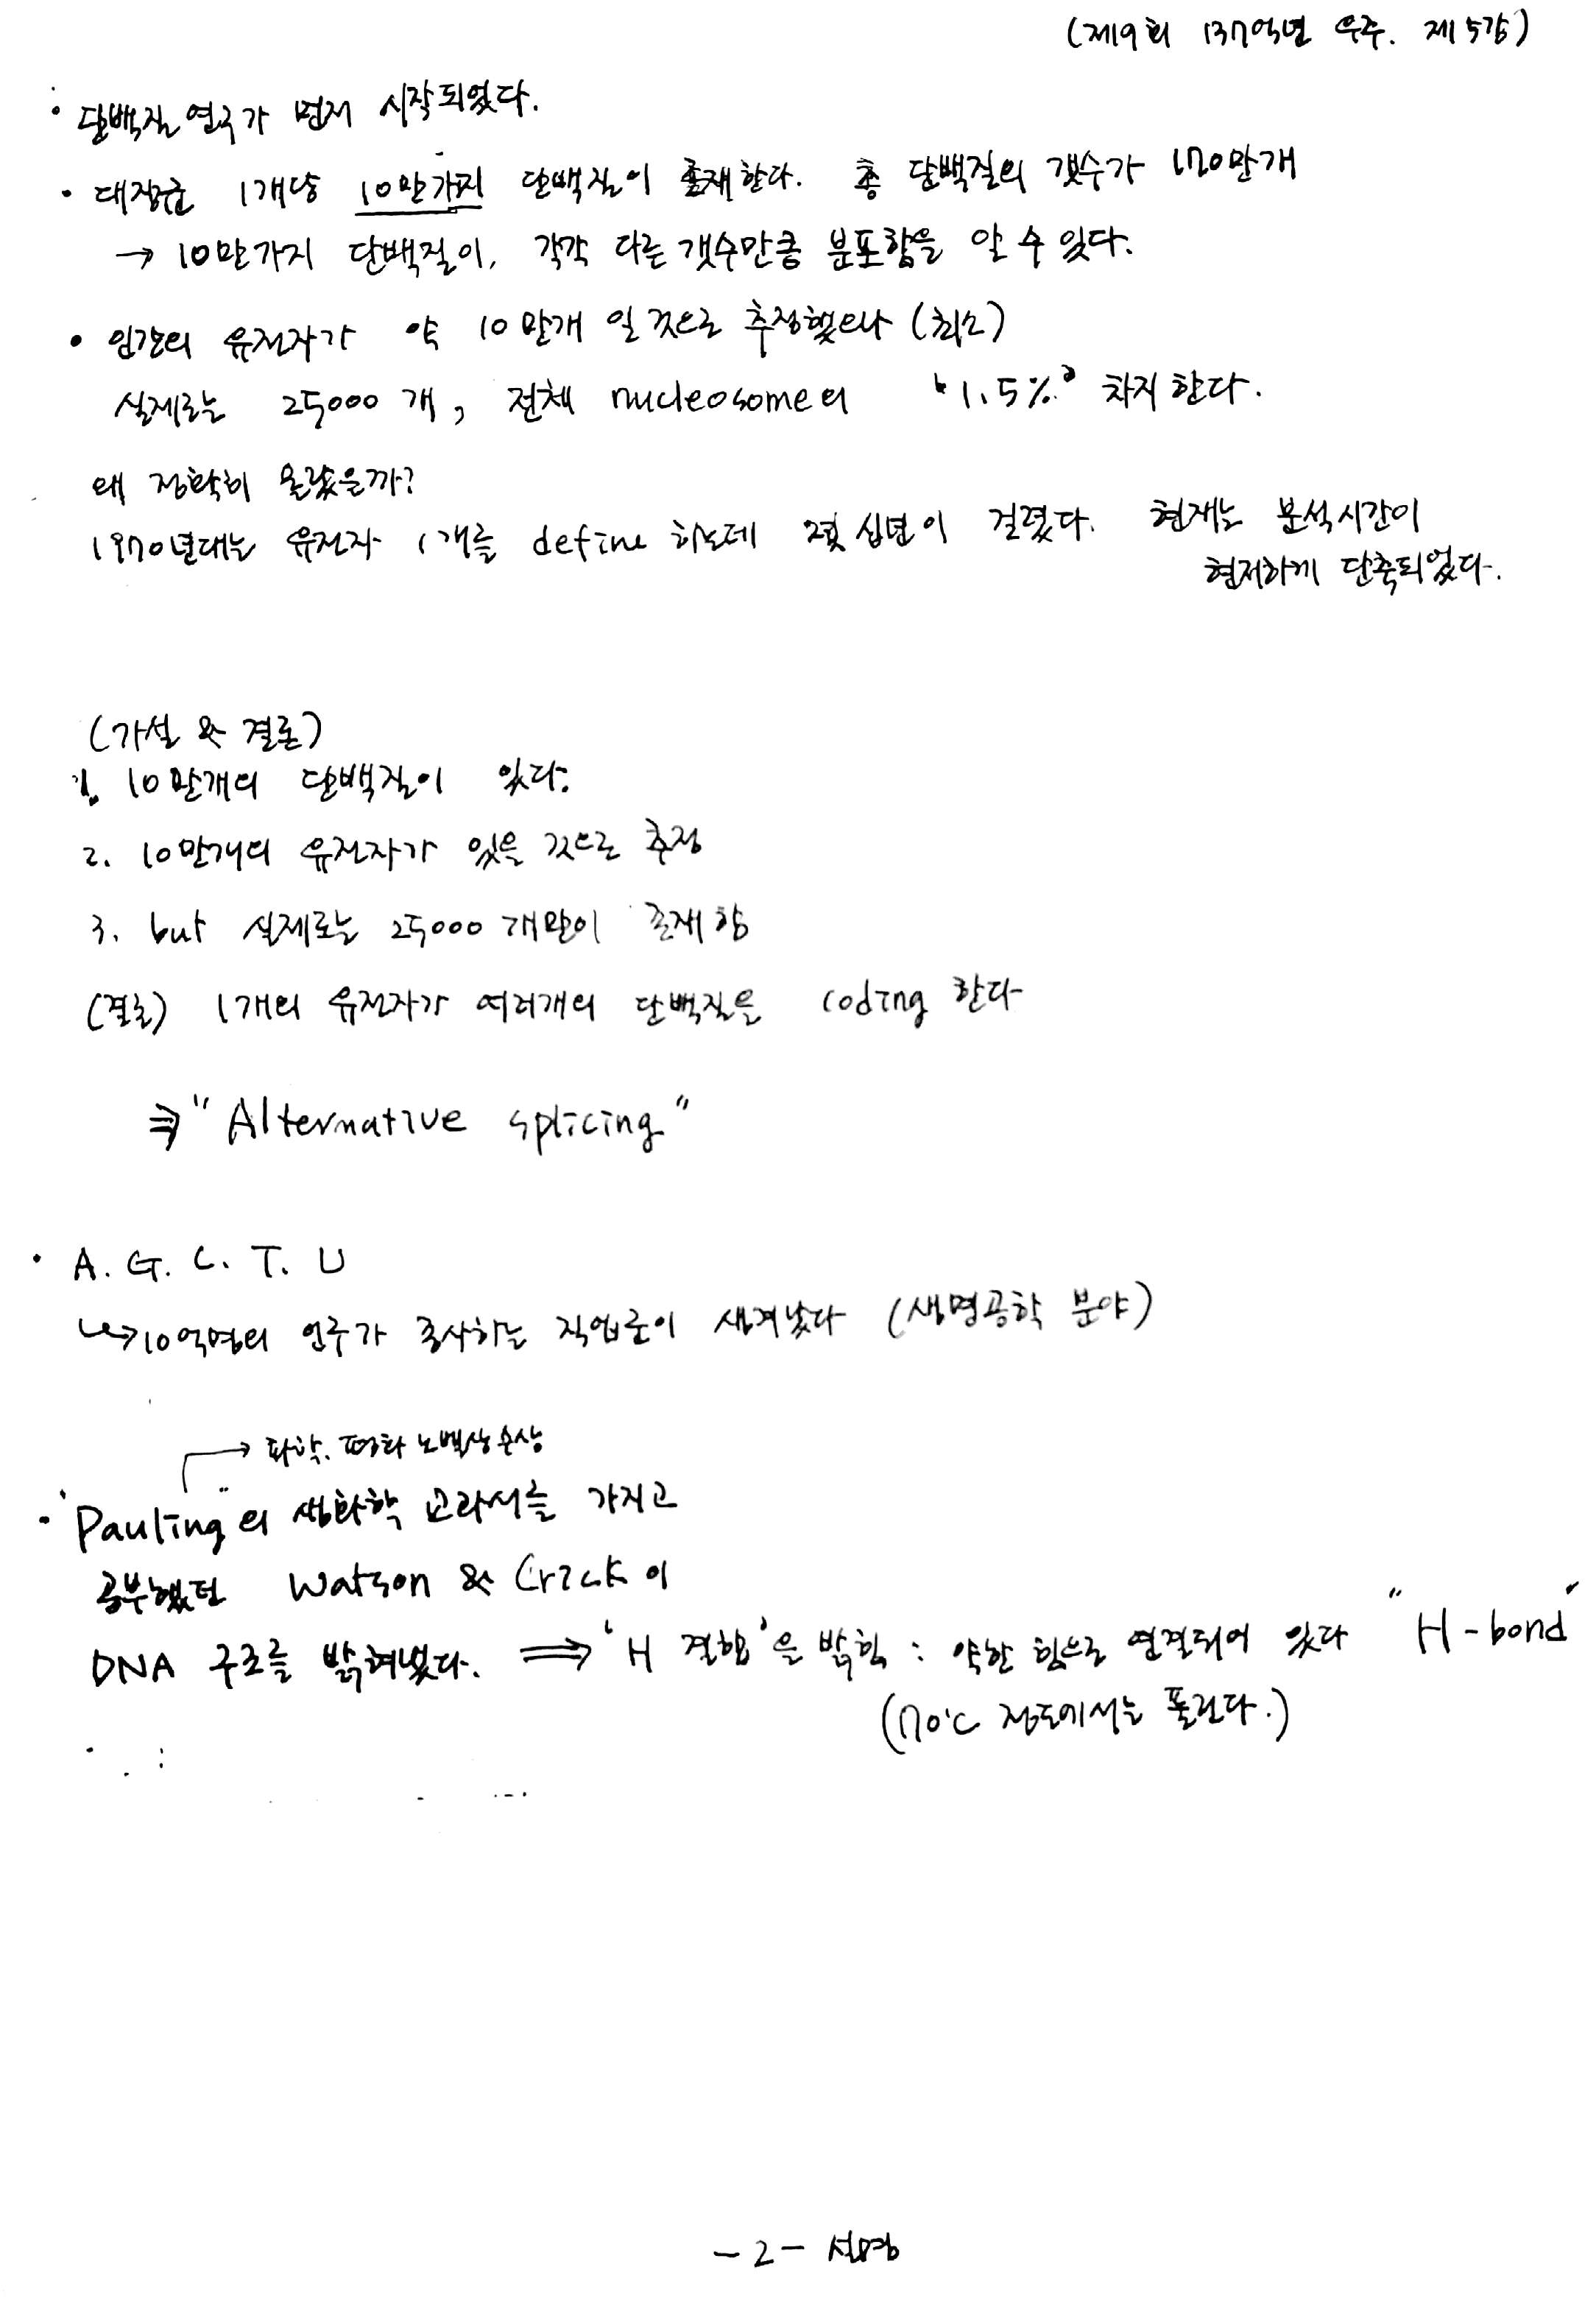 (제9회 137억년 우주. 제5강)
· 단백질 연구가 먼저 시작되었다.
· 대장균 1개당 10만가지 단백질이 존재한다. 총 단백질의 갯수가 170만개
→ 10만가지 단백질이, 각각 다른 갯수만큼 분포함을 알 수 있다.
· 인간의 유전자가 약 10만개 일 것으로 추정했으나 (최소)
실제로는 25000개, 전체 nucleosome의 '1.5%' 차지한다.
왜 정확히 몰랐을까?
1970년대는 유전자 1개를 define 하는데 몇 십년이 걸렸다. 현재는 분석시간이
현저하게 단축되었다.
(가설 & 결론)
1. 10만개의 단백질이 있다.
2. 10만개의 유전자가 있을 것으로 추정
3. but 실제로는 25000개만이 존재함
(결론) 1개의 유전자가 여러개의 단백질을 coding 한다
⇒ "Alternative splicing"
· A. G. C. T. U
↳→10억명의 인구가 종사하는 직업군이 생겨났다 (생명공학 분야)
→ 화학. 평화 노벨상 수상
· "Pauling"의 생화학 교과서를 가지고
공부했던 Watson & Crick이
DNA 구조를 밝혀냈다. ⟹ 'H 결합'을 밝힘 : 약한 힘으로 연결되어 있다 "H-bond"
(70°C 정도에서는 풀린다.)
-2- 선명